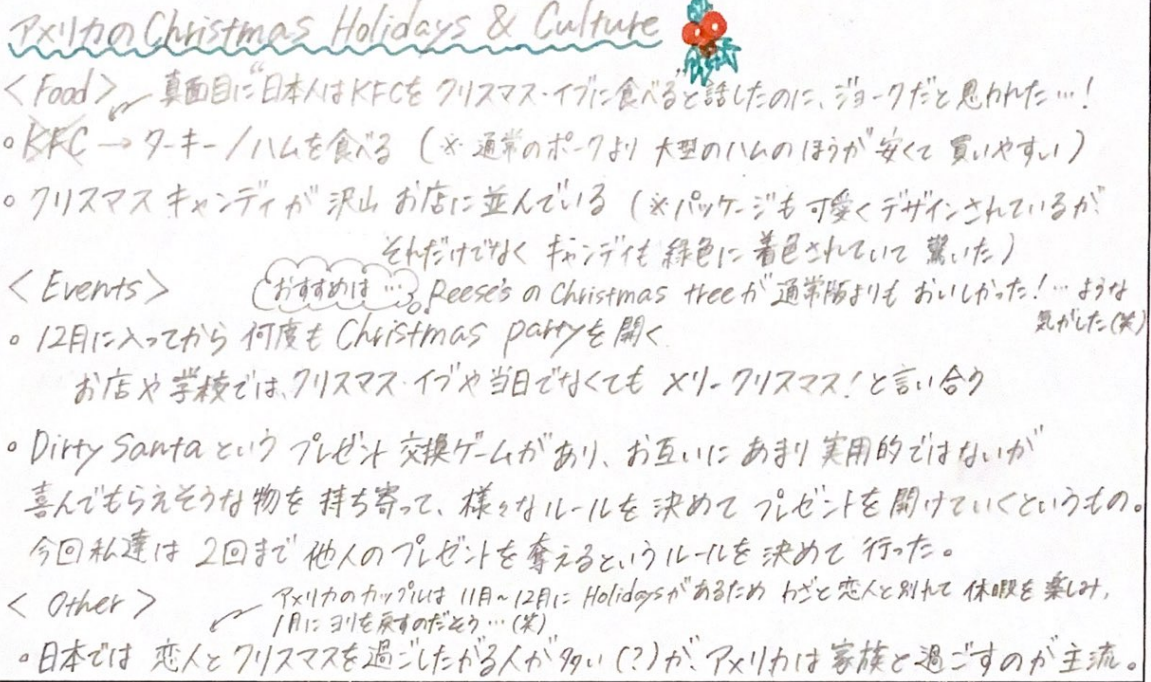 アメリカのChristmas Holidays & Culture
<Food> 真面目に"日本人はKFCをクリスマス・イブに食べる"と話したのに、ジョークだと思われた…!
◦ KFC → ターキー/ハムを食べる (※通常のポークより大型のハムのほうが安くて買いやすい)
◦ クリスマスキャンディが沢山お店に並んでいる (※パッケージも可愛くデザインされているが、
それだけでなくキャンディも緑色に着色されていて驚いた)
<Events> おすすめは… Reese'sのChristmas treeが通常版よりもおいしかった!…ような
気がした(笑)
◦ 12月に入ってから何度もChristmas partyを開く
お店や学校では、クリスマス・イブや当日でなくてもメリークリスマス!と言い合う
◦ Dirty Santaというプレゼント交換ゲームがあり、お互いにあまり実用的ではないが
喜んでもらえそうな物を持ち寄って、様々なルールを決めてプレゼントを開けていくというもの。
今回私達は2回まで他人のプレゼントを奪えるというルールを決めて行った。
<Other> アメリカのカップルは11月~12月にHolidaysがあるためわざと恋人と別れて休暇を楽しみ、
1月にヨリを戻すのだそう…(笑)
◦ 日本では恋人とクリスマスを過ごしたがる人が多い(?)が、アメリカは家族と過ごすのが主流。